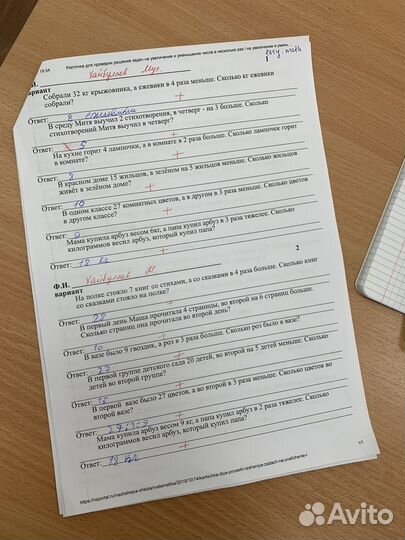 19:34 Карточка для проверки решения задач на увеличение и уменьшение числа в несколько раз / на увеличение и умень...
Хайбулаев Мух.
Ф.И.
вариант
Собрали 32 кг крыжовника, а ежевики в 4 раза меньше. Сколько кг ежевики
собрали?
Ответ: 8 ежевики
В среду Митя выучил 2 стихотворения, в четверг - на 3 больше. Сколько
стихотворений Митя выучил в четверг?
Ответ: 5
На кухне горит 4 лампочки, а в комнате в 2 раза больше. Сколько лампочек горит
в комнате?
Ответ: 8
В красном доме 15 жильцов, в зелёном на 5 жильцов меньше. Сколько жильцов
живёт в зелёном доме?
Ответ: 10
В одном классе 27 комнатных цветов, а в другом в 3 раза меньше. Сколько цветов
в другом классе?
Ответ: 9
Мама купила арбуз весом 6кг, а папа купил арбуз в 3 раза тяжелее. Сколько
килограммов весил арбуз, который купил папа?
Ответ: 18 кг
2
Ф.И. Хайбулаев М.
вариант
На полке стояло 7 книг со стихами, а со сказками в 4 раза больше. Сколько книг
со сказками стояло на полке?
Ответ: 28
В первый день Маша прочитала 4 страницы, во второй на 6 страниц больше.
Сколько страниц она прочитала во второй день?
Ответ: 10
В вазе было 9 гвоздик, а роз в 3 раза больше. Сколько роз было в вазе?
Ответ: 27
В первой группе детского сада 20 детей, во второй на 5 детей меньше. Сколько
детей во второй группе?
Ответ: 15
В первой вазе было 27 цветов, а во второй в 3 раза меньше. Сколько цветов во
второй вазе?
Ответ: 27:3=9
Мама купила арбуз весом 9 кг, а папа купил арбуз в 2 раза тяжелее. Сколько
килограммов весил арбуз, который купил папа?
Ответ: 18 кг
1/1
Avito